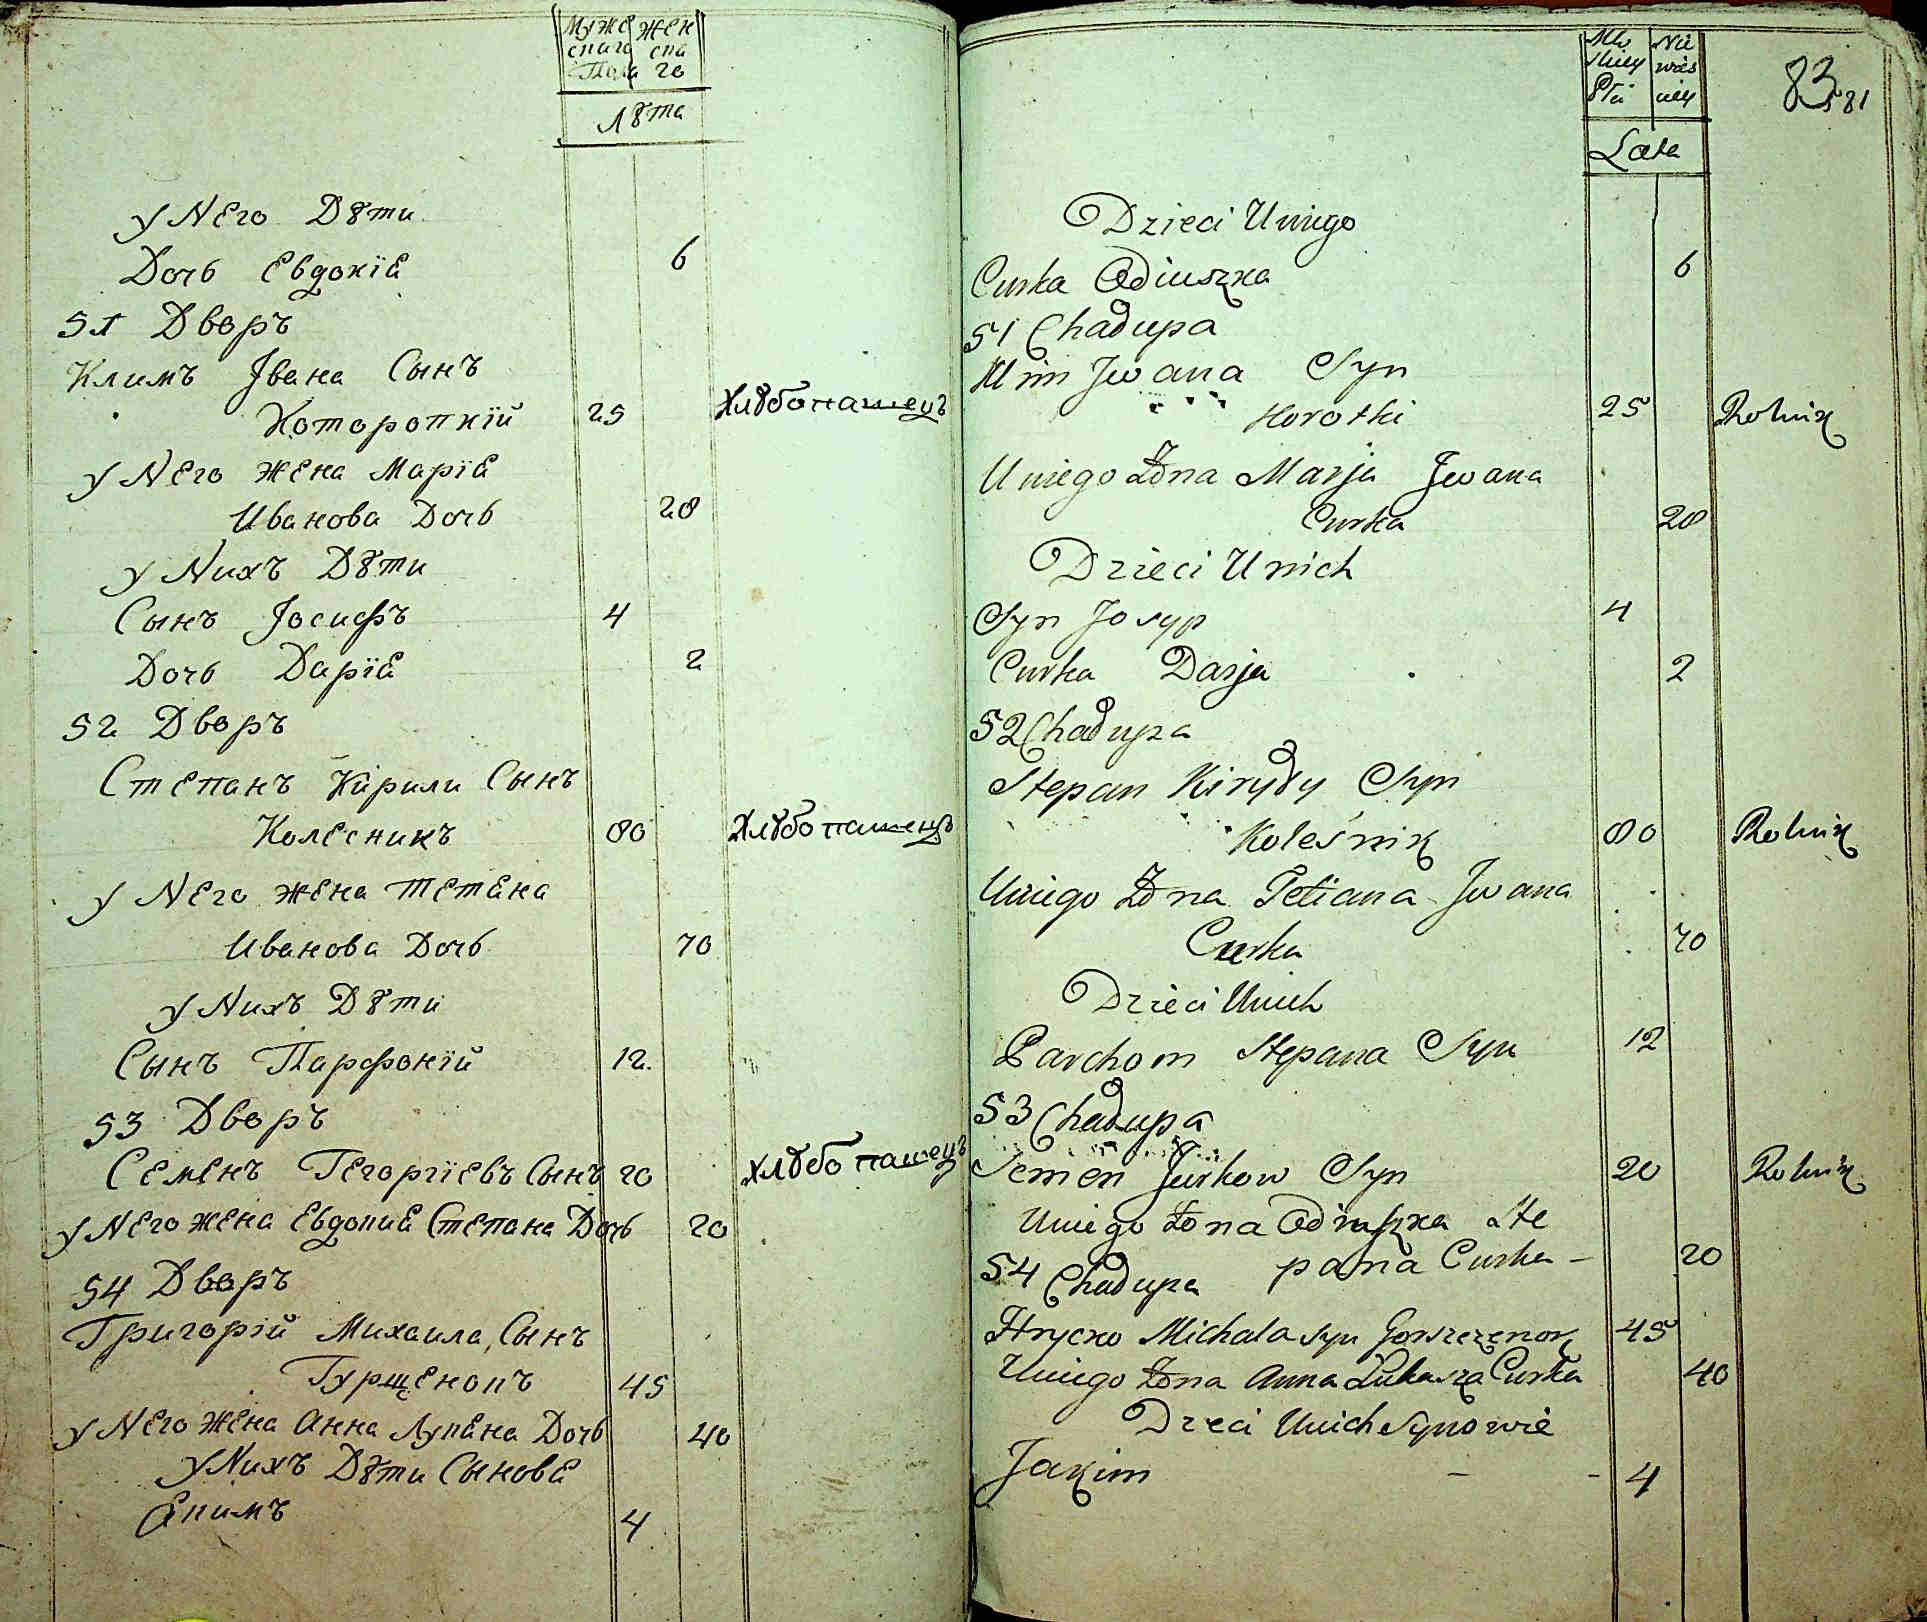 Муже жен
скаго ска
Пола го
Лѣта
у Него Дѣти
Дочь Евдокїя 6
51 Дворъ
Климъ Івана Сынъ
Которопкїй 25 Хлѣбопашецъ
у Него жена Марїя
Иванова Дочь 28
у Нихъ Дѣти
Сынъ Іосифъ 4
Дочь Дарїя 2
52 Дворъ
Степанъ Кирили Сынъ
Колесникъ 80 Хлѣбопашецъ
у Него жена Тетяна
Иванова Дочь 70
у Нихъ Дѣти
Сынъ Парфонїй 12.
53 Дворъ
Семенъ Гегоргїевъ Сынъ 20 Хлѣбопашецъ
у Него жена Евдокия Степана Дочь 20
54 Дворъ
Григорїй Михаила Сынъ
Гурщенокъ 45
у Него жена Анна Лукяна Дочь 40
у Нихъ Дѣти Сыновя
Якимъ 4
83 81
Mę Nie
skiey wies
Płci ciey
Lata
Dzieci U niego
Curka Odiuszka 6
51 Chałupa
Klim Jwana Syn
Korotki 25 Rolnik
U niego Żona Marja Jwana
Curka 28
Dzieci U nich
Syn Josyp 4
Curka Darja 2
52 Chałupa
Stepan Kiryły Syn
Koleśnik 80 Rolnik
U niego Żona Tetiana Jwana
Curka 70
Dzieci U nich
Parchom Stepana Syn 12
53 Chałupa
Semen Jurkow Syn 20 Rolnik
U niego Żona Odiuszka Ste
pana Curka - 20
54 Chałupa
Hrycko Michała Syn Gorszczenok 45
U niego Żona Anna Łukasza Curka 40
Dzeci U nich Synowie
Jakim - - 4